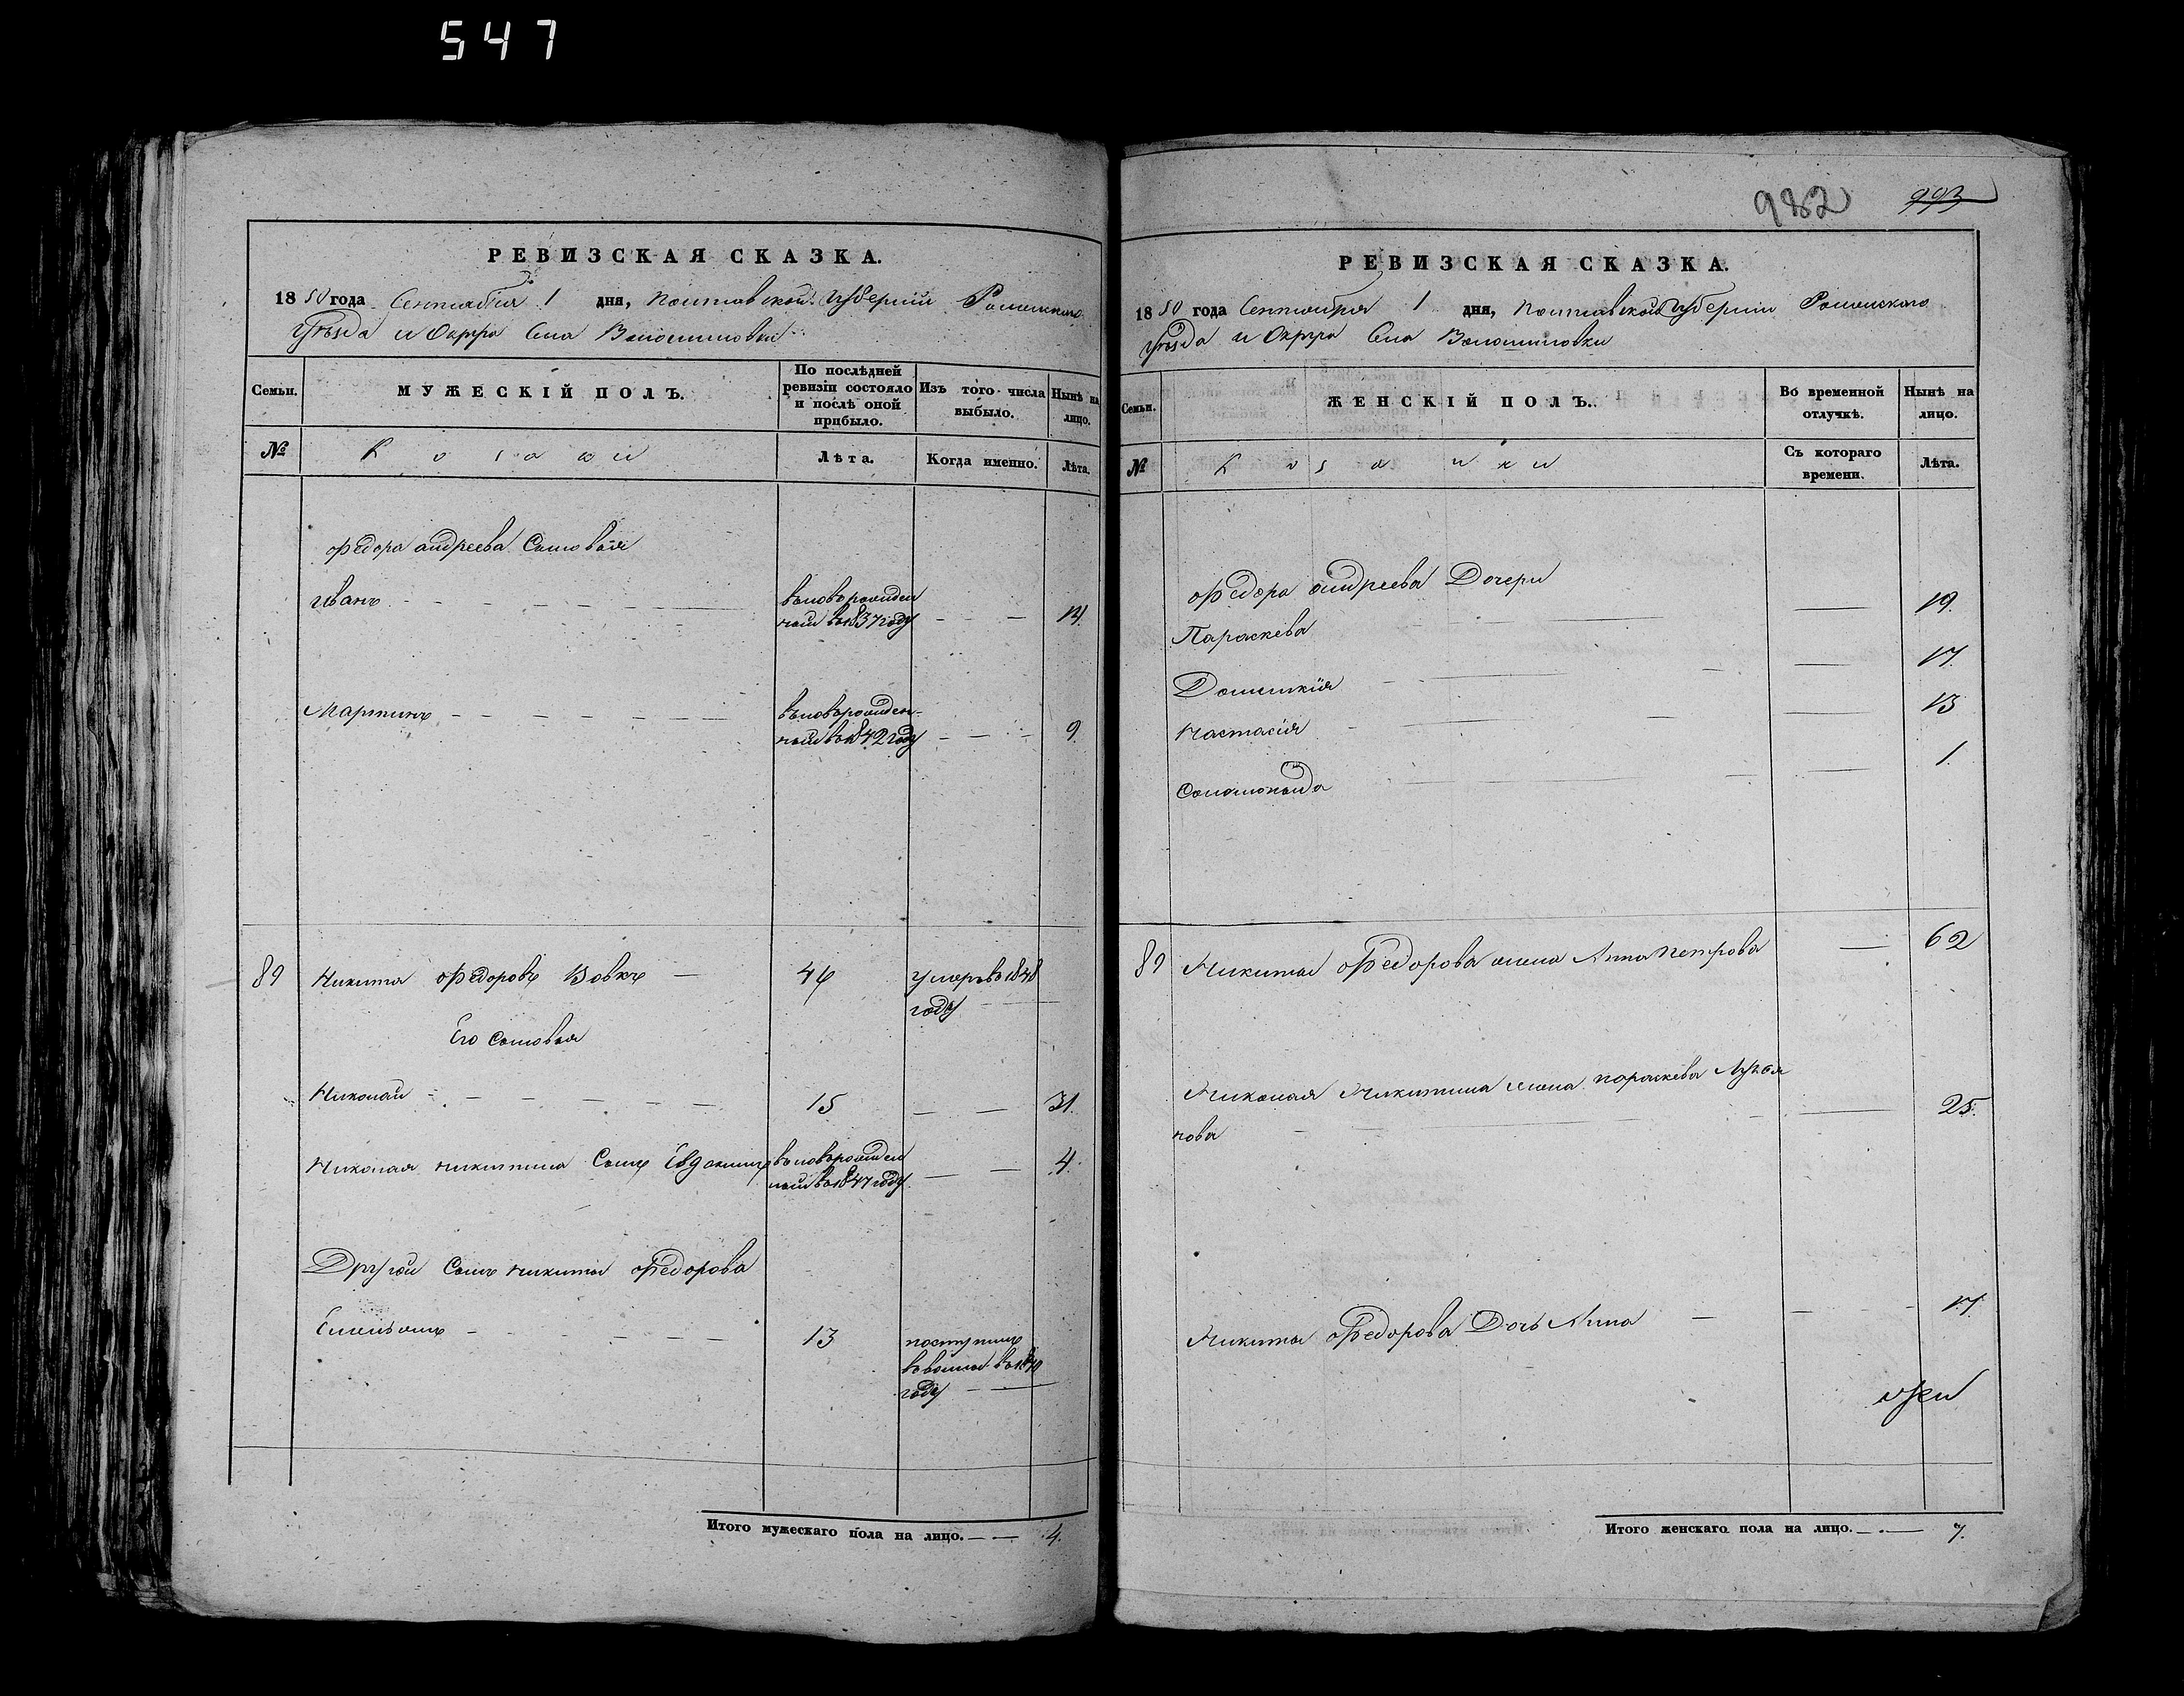 547
РЕВИЗСКАЯ СКАЗКА.
1850 года Сентября 1 дня, Полтавской Губерніи Роменскаго
Уѣзда и Округа Села Волошиновки
Семьи. МУЖЕСКІЙ ПОЛЪ. По послѣдней ревизіи состояло и послѣ оной прибыло. Изъ того числа выбыло. Нынѣ на лицо.
№ Козаки Лѣта. Когда именно. Лѣта.
Федора Андреева Сыновья
Иванъ вновьрожден
ный в 1837 году 14.
Мартинъ вновьрожден-
ный в 1842 году 9.
89 Никита Федоровъ Вовкъ 46 умеръ в 1848
году
Его Сыновья
Николай 15 31.
Николая Никитина Сынъ Евдокимъ вновьрожден
ный в 1847 году 4.
Другой Сынъ Никиты Федорова
Емельянъ 13 поступилъ
году
Итого мужескаго пола на лицо. 4.
982 993
РЕВИЗСКАЯ СКАЗКА.
1850 года Сентября 1 дня, Полтавской Губерніи Роменскаго
Уѣзда и Округа Села Волошиновки
Семьи. ЖЕНСКІЙ ПОЛЪ. Во временной отлучкѣ. Нынѣ на лицо.
№ Козачки Съ котораго времени. Лѣта.
Федора Андреева Дочери
Параскева 19.
Домникія 17.
Настасія 13
Соломонида 1.
89 Никиты Федорова жена Анна Петрова 62
Николая Никитина жена Параскева Лукья
нова 25.
Никиты Федорова Дочь Анна 17.
Итого женскаго пола на лицо. 7.